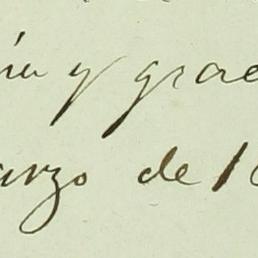 y grac
arzo de 1